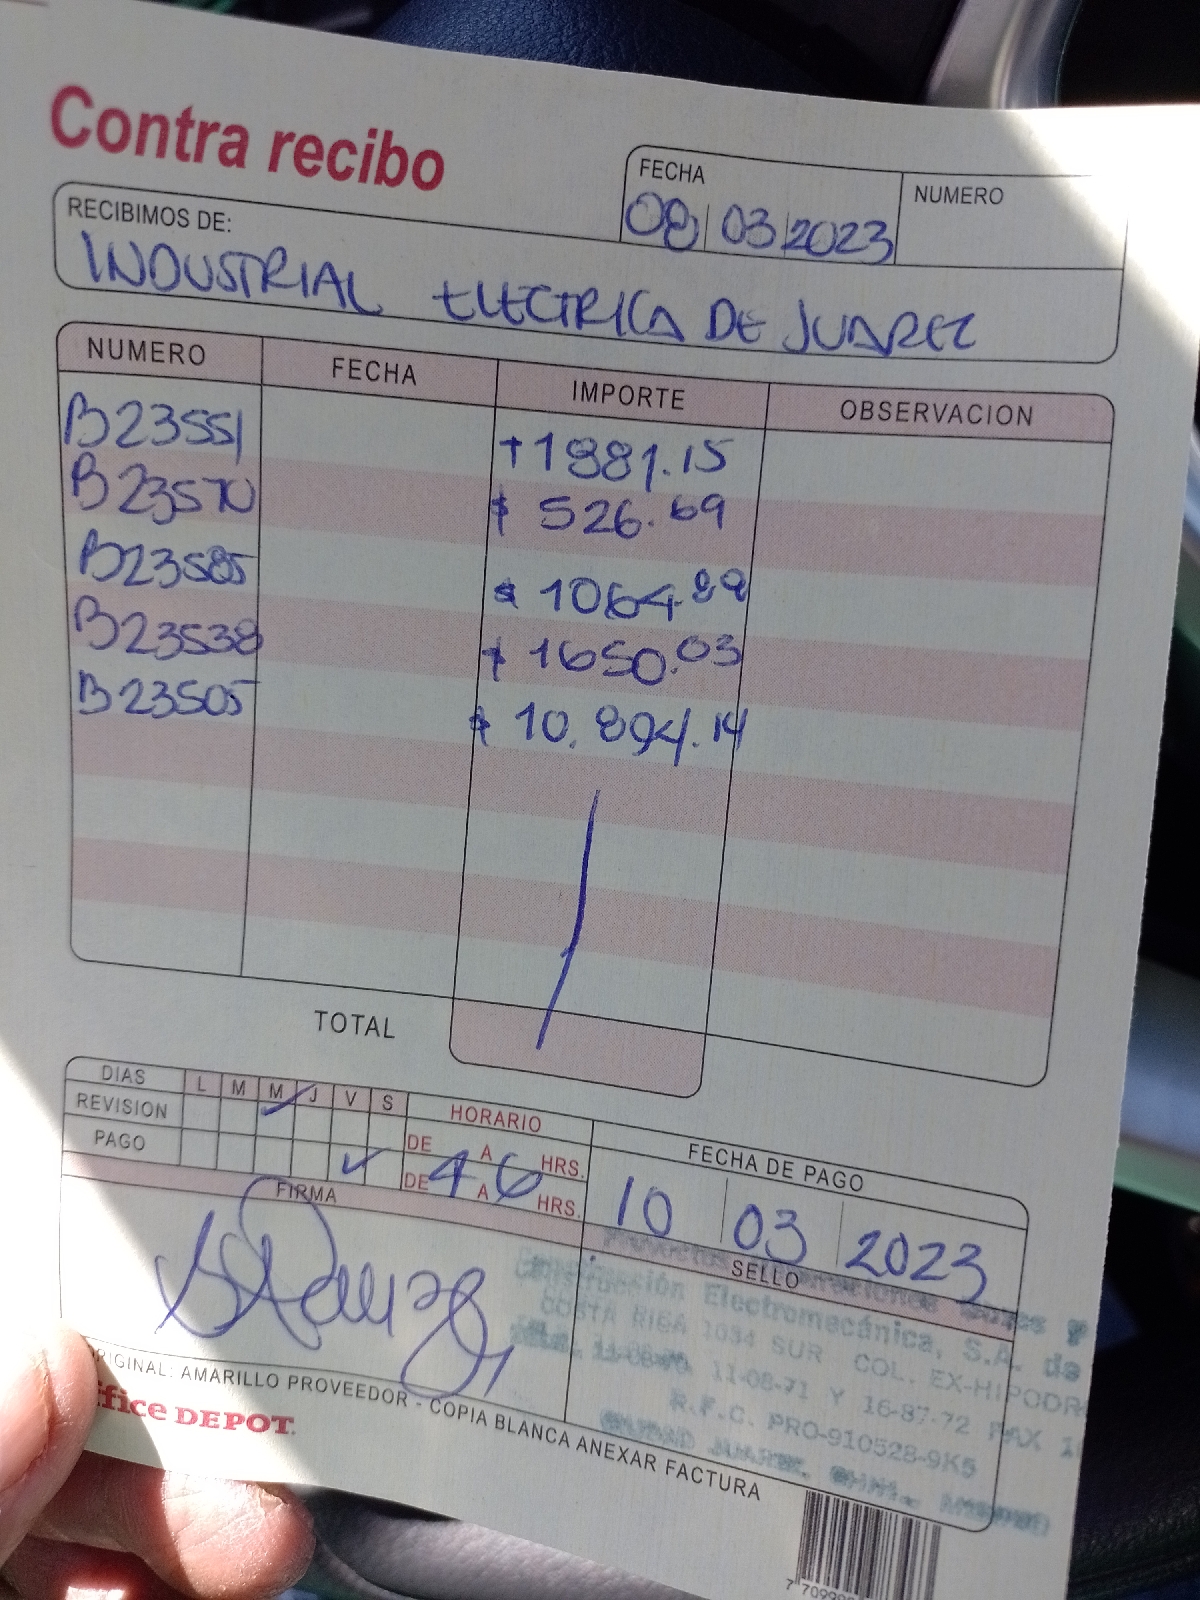 Contra recibo
FECHA
08 03 2023
NUMERO
RECIBIMOS DE:
INDUSTRIAL ELECTRICA DE JUAREZ
NUMERO FECHA IMPORTE OBSERVACION
B23551 $1881.15
B23570 $ 526.69
B23585 $ 1064.89
B23538 $ 1650.03
B23505 $ 10,894.14
TOTAL
DIAS L M M J V S HORARIO FECHA DE PAGO
REVISION DE A HRS.
PAGO DE 4 A 6 HRS.
10 03 2023
FIRMA SELLO
Construcción Electromecánica, S.A. de
COSTA RICA 1034 SUR COL. EX-HIPODR
11-08-71 Y 16-87-72 FAX 1
R.F.C. PRO-910528-9K5
CIUDAD JUAREZ, CHIH.
ORIGINAL: AMARILLO PROVEEDOR - COPIA BLANCA ANEXAR FACTURA
ffice DEPOT.